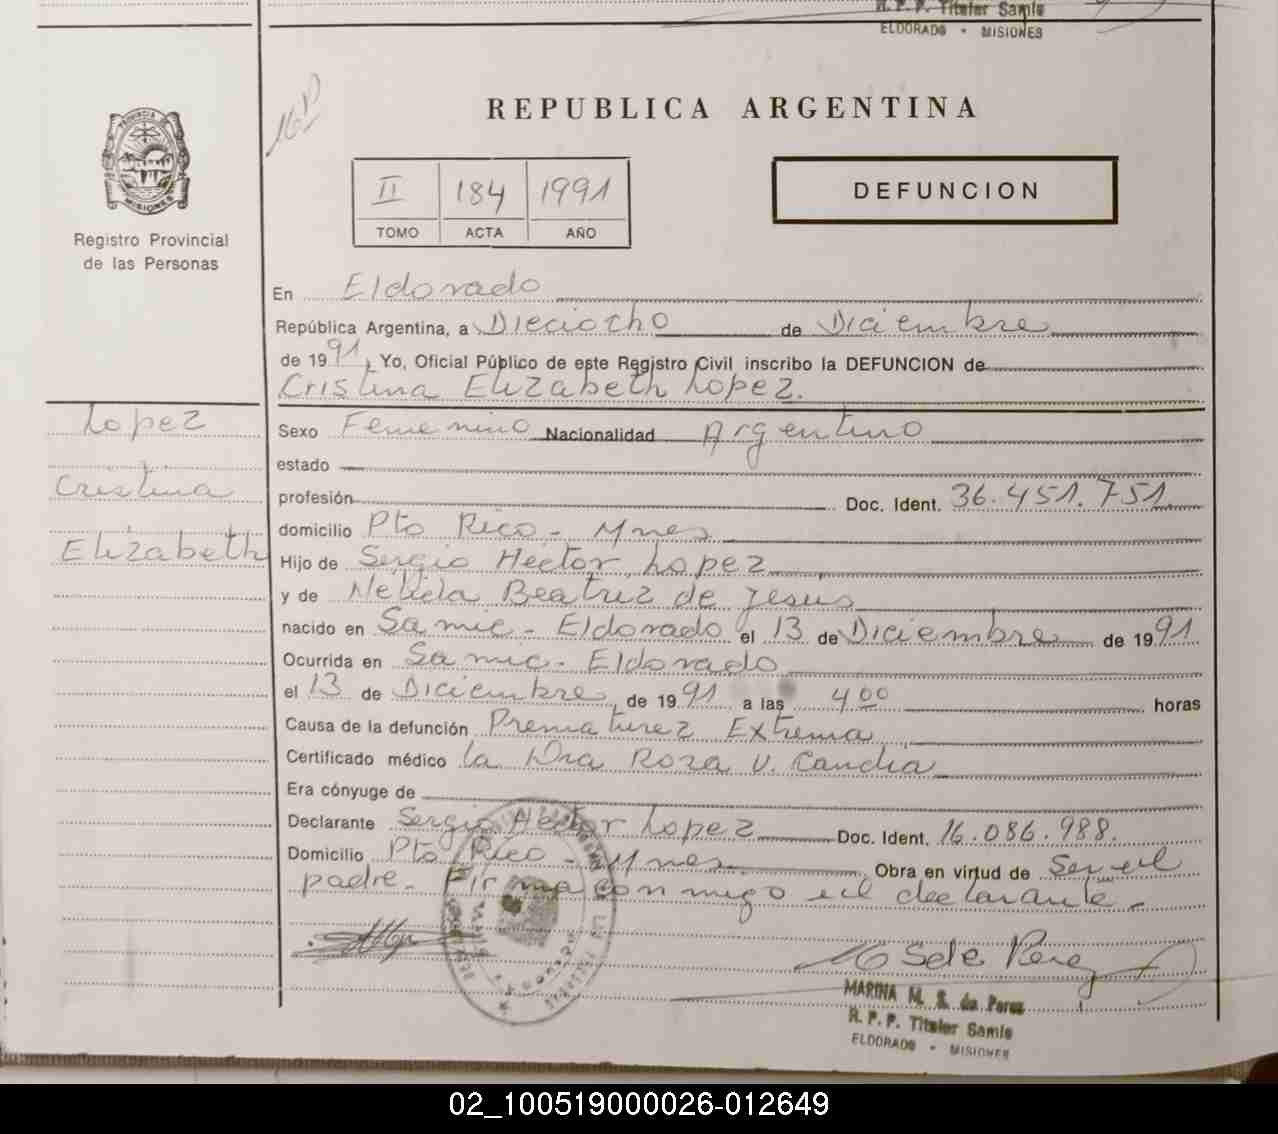 R. P. P. Titular Samic
ELDORADO - MISIONES
REPUBLICA ARGENTINA
PROVINCIA DE
MISIONES
Registro Provincial
de las Personas
II 184 1991
TOMO ACTA AÑO
DEFUNCION
En Eldorado
República Argentina, a Dieciocho de Diciembre
de 1991, Yo, Oficial Público de este Registro Civil inscribo la DEFUNCION de
Cristina Elizabeth Lopez.
Lopez
Cristina
Elizabeth
Sexo Femenino Nacionalidad Argentino
estado
profesión Doc. Ident. 36.451.751
domicilio Pto Rico - Mnes
Hijo de Sergio Hector Lopez
y de Nelida Beatriz de Jesus
nacido en Samic - Eldorado el 13 de Diciembre de 1991
Ocurrida en Samic - Eldorado
el 13 de Diciembre de 1991 a las 4 00 horas
Causa de la defunción Prematurez Extrema
Certificado médico la Dra Rosa V. Candia
Era cónyuge de
Declarante Sergio Hector Lopez Doc. Ident. 16.086.988.
Domicilio Pto Rico - Mnes. Obra en virtud de Ser el
padre. Firma con migo el declarante.
MARINA M. S. de Perez
R. P. P. Titular Samic
ELDORADO - MISIONES
02_100519000026-012649